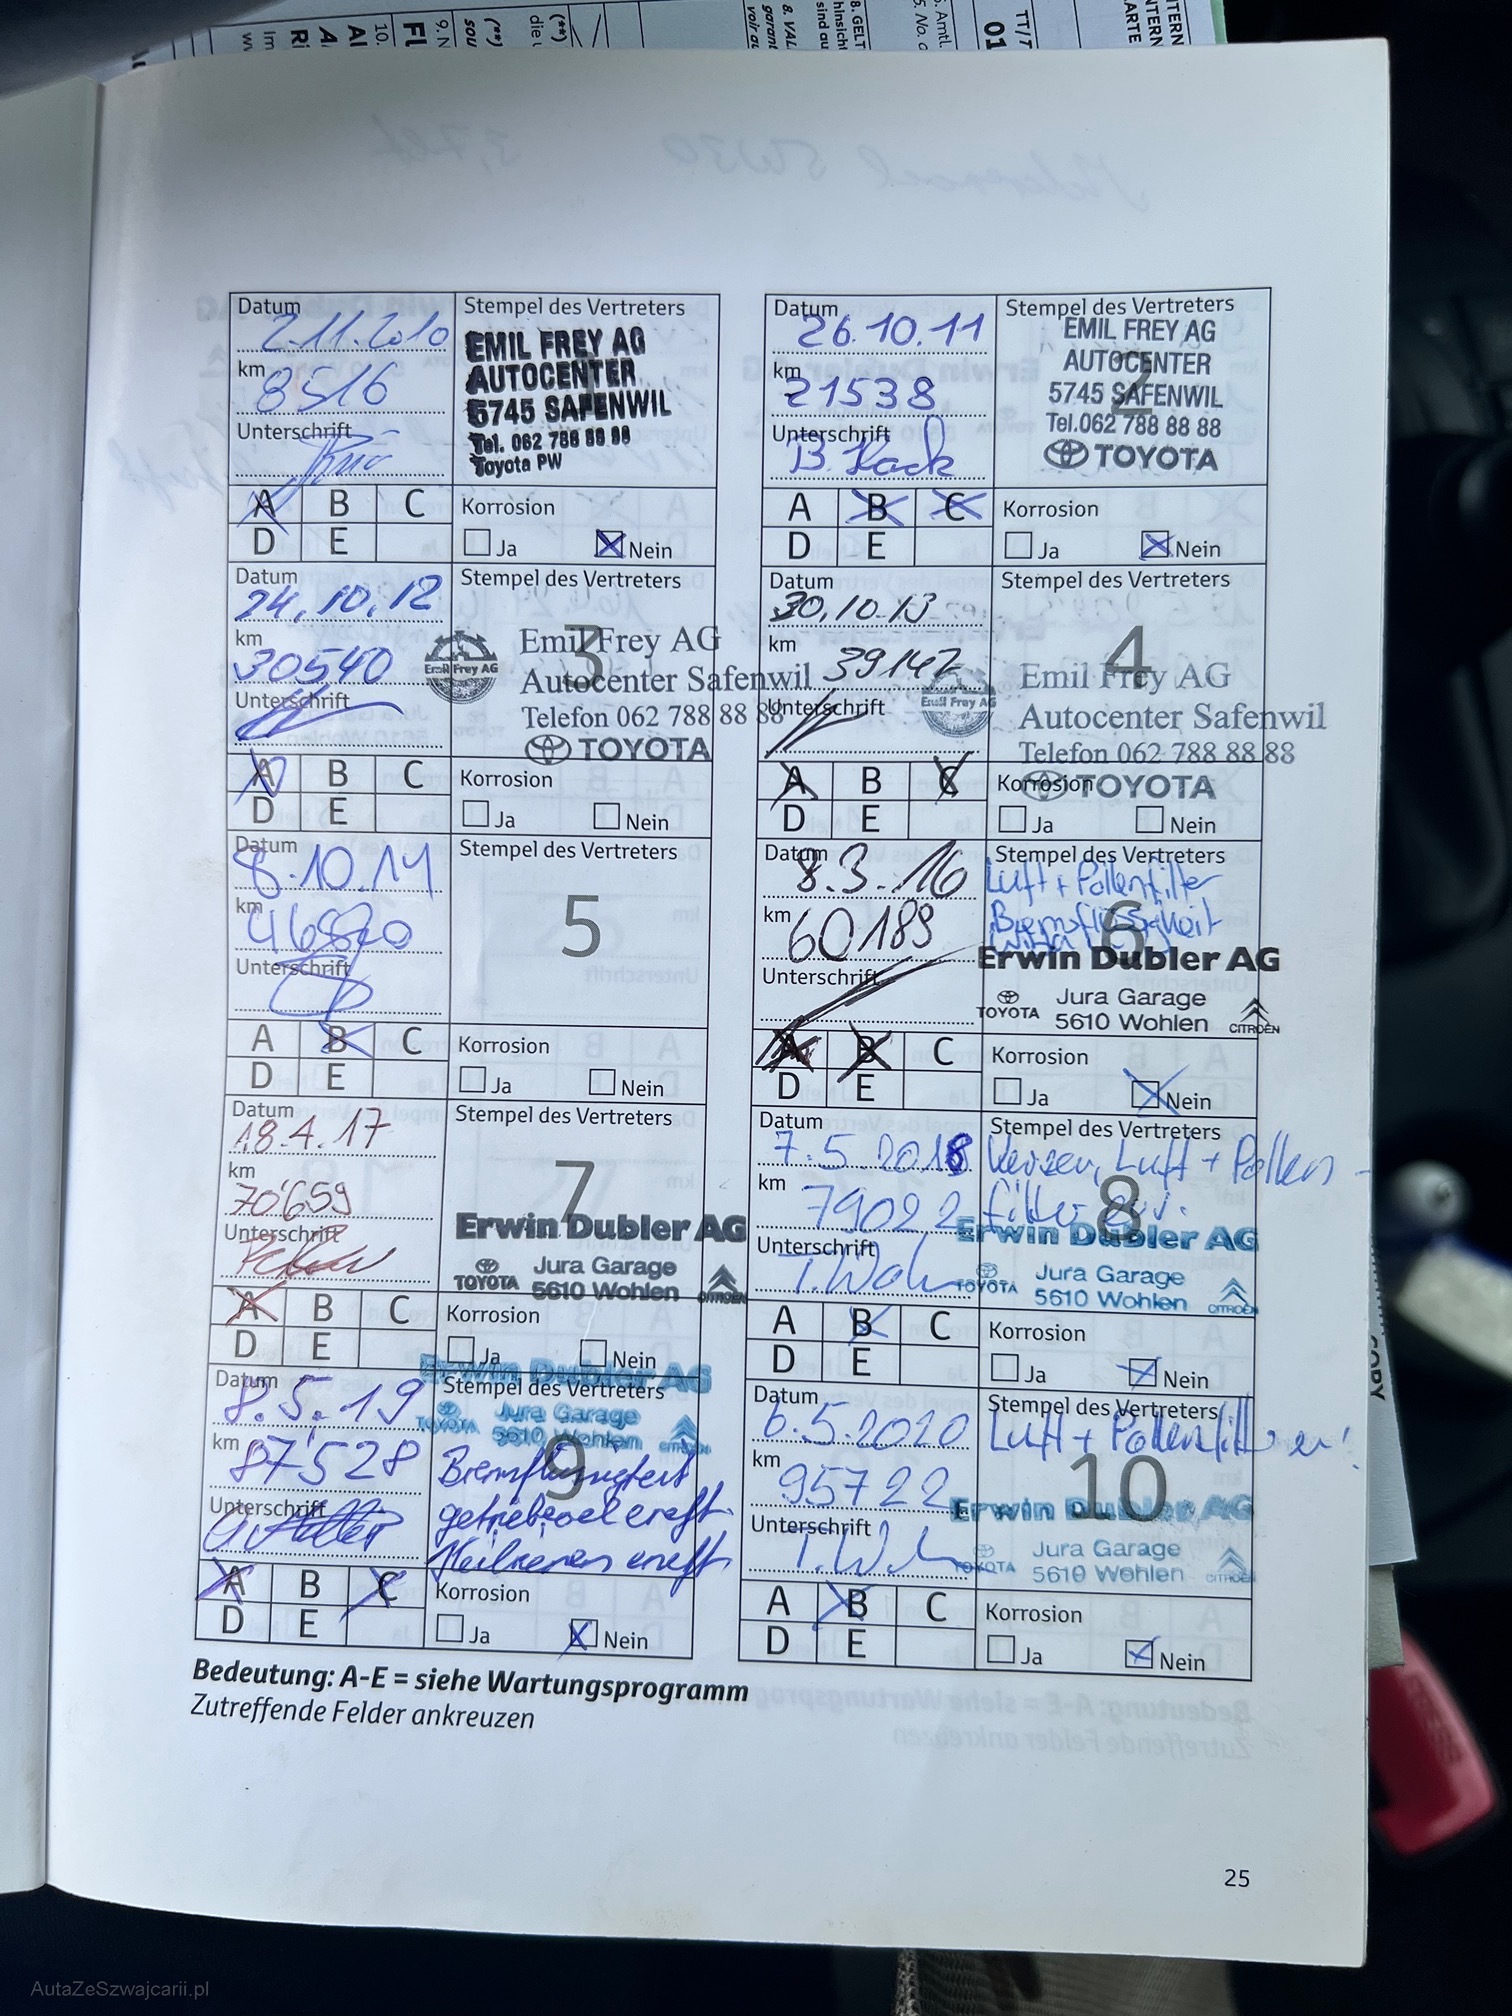 Datum
2.11.2010
km
8516
Unterschrift
Stempel des Vertreters
1
EMIL FREY AG
AUTOCENTER
5745 SAFENWIL
Tel. 062 788 88 88
Toyota PW
A B C
D E
Korrosion
Ja Nein
Datum
26.10.11
km
21538
Unterschrift
Stempel des Vertreters
2
EMIL FREY AG
AUTOCENTER
5745 SAFENWIL
Tel.062 788 88 88
TOYOTA
A B C
D E
Korrosion
Ja Nein
Datum
24.10.12
km
30540
Unterschrift
Stempel des Vertreters
3
Emil Frey AG
Emil Frey AG
Autocenter Safenwil
Telefon 062 788 88 88
TOYOTA
A B C
D E
Korrosion
Ja Nein
Datum
30.10.13
km
39147
Unterschrift
Stempel des Vertreters
4
Emil Frey AG
Emil Frey AG
Autocenter Safenwil
Telefon 062 788 88 88
TOYOTA
A B C
D E
Korrosion
Ja Nein
Datum
8.10.14
km
46820
Unterschrift
Stempel des Vertreters
5
A B C
D E
Korrosion
Ja Nein
Datum
8.3.16
km
60189
Unterschrift
Stempel des Vertreters
Luft + Pollenfilter
Bremsflüssigkeit
6
Erwin Dubler AG
Jura Garage
5610 Wohlen
TOYOTA
CITROËN
A B C
D E
Korrosion
Ja Nein
Datum
18.4.17
km
70'659
Unterschrift
Stempel des Vertreters
7
Erwin Dubler AG
Jura Garage
5610 Wohlen
TOYOTA
CITROËN
A B C
D E
Korrosion
Ja Nein
Datum
7.5.2018
km
79022
Unterschrift
Stempel des Vertreters
Kerzen, Luft + Pollen-
filter
8
Erwin Dubler AG
Jura Garage
5610 Wohlen
TOYOTA
CITROËN
A B C
D E
Korrosion
Ja Nein
Datum
8.5.19
km
87'528
Unterschrift
Erwin Dubler AG
Stempel des Vertreters
Jura Garage
5610 Wohlen
TOYOTA
CITROËN
9
Bremsflüssigkeit
getriebeoel
A B C
D E
Korrosion
Ja Nein
Datum
6.5.2020
km
95722
Unterschrift
Stempel des Vertreters
Luft + Pollenfilter
10
Erwin Dubler AG
Jura Garage
5610 Wohlen
TOYOTA
CITROËN
A B C
D E
Korrosion
Ja Nein
Bedeutung: A-E = siehe Wartungsprogramm
Zutreffende Felder ankreuzen
25
COPY
AutaZeSzwajcarii.pl